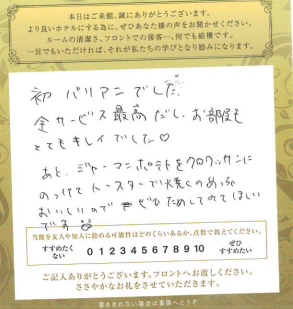 本日はご来館、誠にありがとうございます。
より良いホテルにする為に、ぜひあなた様の声をお聞かせください。
ルームの清潔さ、フロントでの接客…、何でも結構です。
一言でもいただければ、それが私たちの学びとなり励みになります。
初バリアンでした。
全サービス最高だし、お部屋も
とてもキレイでした♡
あと、ジャーマンポテトをクロワッサンに
のっけてトースターで焼くのめっちゃ
おいしいので ぜひためしてみてほしい
です
当館を友人や知人に勧める可能性はどのくらいあるか、点数で教えてください。
すすめたく
ない
0 1 2 3 4 5 6 7 8 9 10
ぜひ
すすめたい
ご記入ありがとうございます。フロントへお渡しください。
ささやかなお礼をさせていただきます。
書ききれない場合は裏面へどうぞ